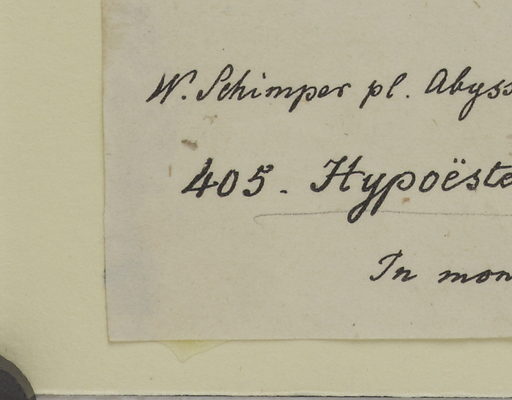 W. Schimper pl. Abyss
405. Hypoëste
In mon